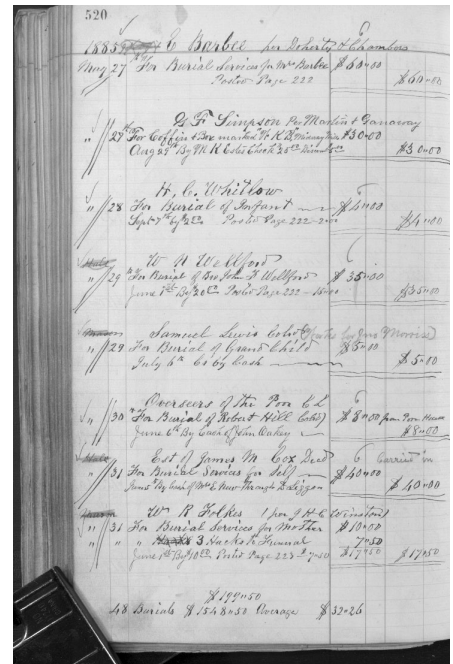 520
1885 E Barbee per Doherty & Chambers
May 27 For Burial Services for Mrs Barbee $60"00
Posted Page 222 $60"00
F Simpson Per Martin & Danaway
" 27th For Coffin & Box marked $30"00
$30"00
H. C. Whitlow
" 28 For Burial of Infant $4"00
Sept 7th Posted Page 222 $4"00
W N Wellford
" 29 For Burial of Bro John Wellford $35"00
June 1st By Posted Page 222 $35"00
Samuel Lewis Cold
" 29 For Burial of Grand Child $5"00
July 6th Co by Cash $5"00
Overseers of the Poor
" 30 For Burial of Robert Hill Cold $8"00 from Poor House
June 6th By Cash of Oakey $8"00
Est of James M Cox Decd Carried for
" 31 For Burial Services for Self $40"00
June By Cash of Mrs E New Through Liggon $40"00
W R Folkes (per J H C Winston)
" 31 For Burial Services for Mother $10"00
" " 3 Hacks to Funeral 7"50
June 1st By Posted Page 223 $17"50 $17"50
$199"50
48 Burials $1548"50 Average $32"26